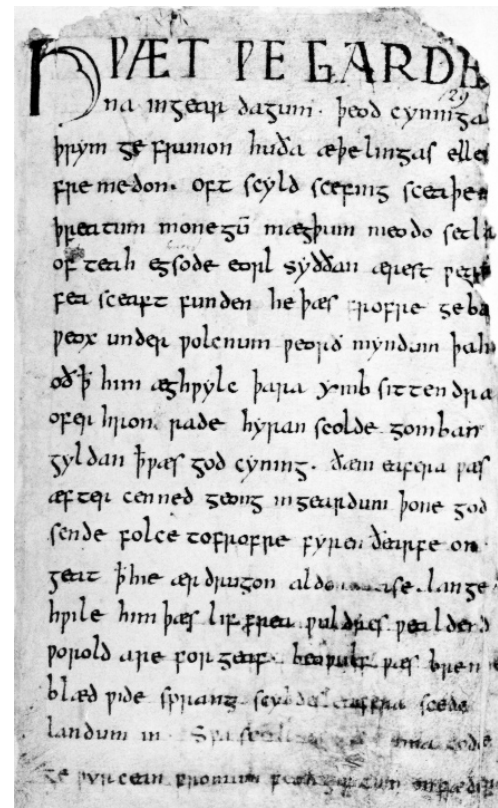 HǷÆT ǷE GARDE
129
na ingear dagum. þeod cyninga
þrym ge frunon huða æþelingas elle
fre medon. oft scyld scefing sceaþe
þreatum monegū mægþum meodo setla
of teah egsode eorl syððan ærest
fea sceaft funden he þæs frofre geba
ƿeox under ƿolcnum ƿeorð myndum þah
oð ꝥ him æghƿylc þara ymb sittendra
ofer hron rade hyran scolde gomban
gyldan ꝥ ƿæs god cyning. ðæm eafera ƿæs
æfter cenned geong ingeardum þone god
sende folce tofrofre fyren ðearfe on
geat ꝥ hie ær drugon lange
hƿile him þæs lif frea ƿuldres ƿealdend
ƿorold are for geaf. beoƿulf ƿæs breme
blæd ƿide sprang scyldes eafera scede
landum in. Sƿa guma gode
ge ƿyrcean fromum feoh giftum